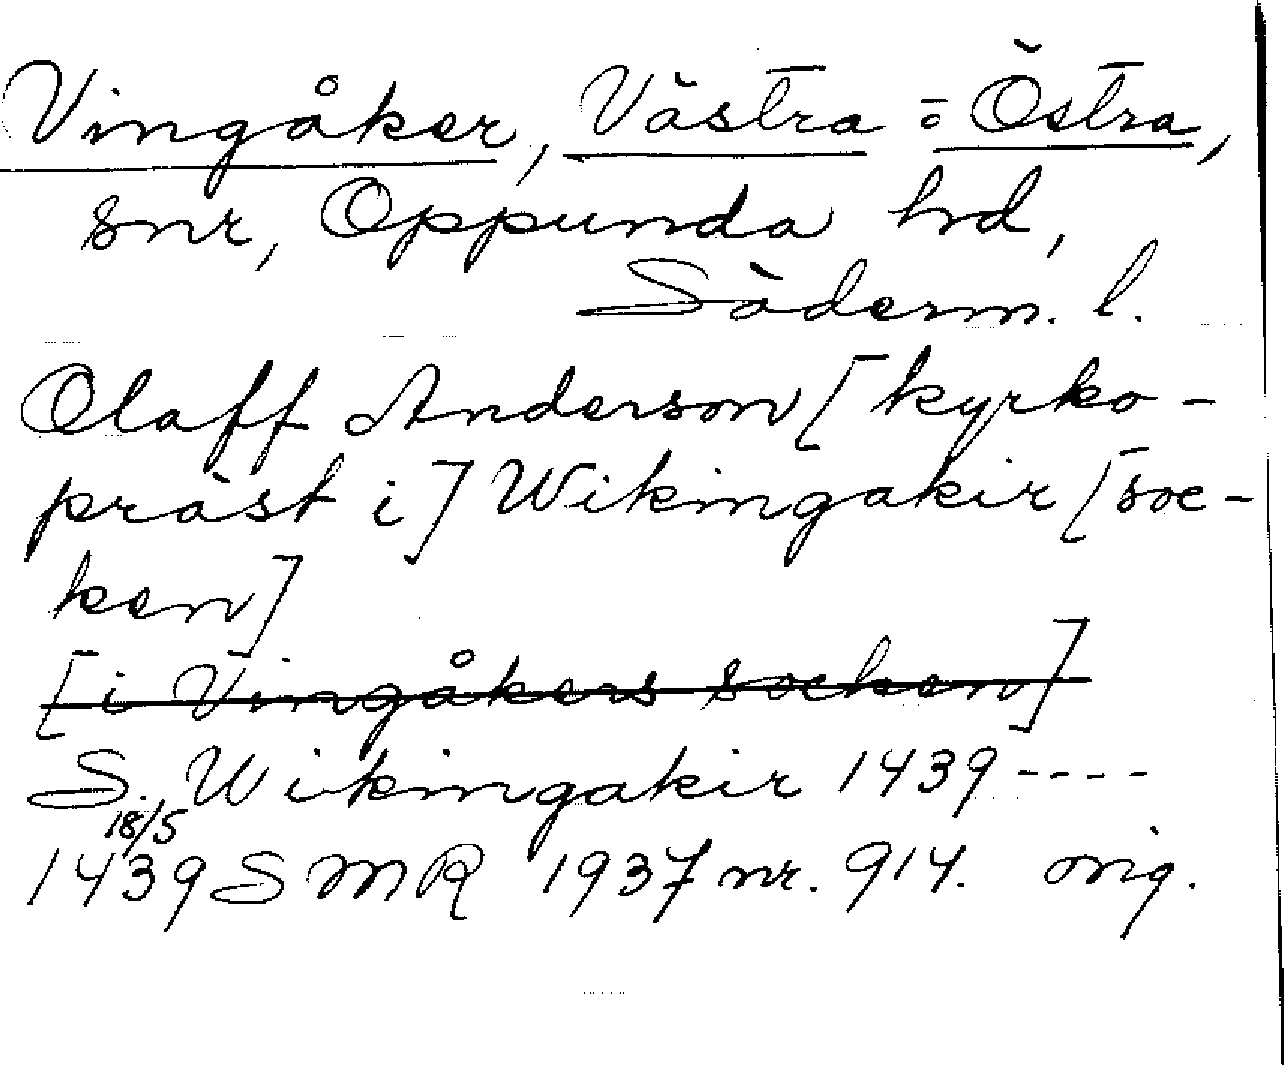 Vingåker, Västra = Östra,
snr, Oppunda hd,
Söderm. l.
Olaff Anderson [kyrko-
präst i] Wikingakir [soc-
ken]
[i Vingåkers socken]
S. Wikingakir 1439 ----
18/5
1439 SMR 1937 nr. 914. orig.